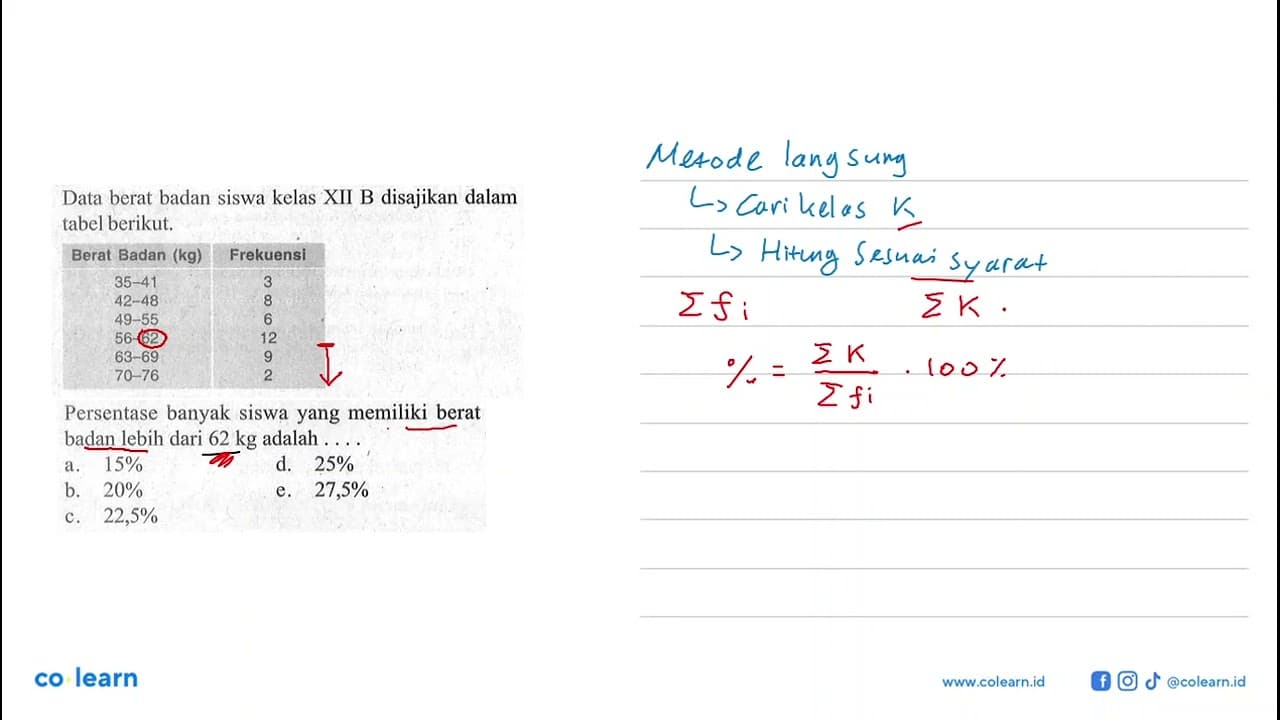 Data berat badan siswa kelas XII B disajikan dalam
tabel berikut.
Berat Badan (kg) Frekuensi
35–41 3
42–48 8
49–55 6
56–62 12
63–69 9
70–76 2
Persentase banyak siswa yang memiliki berat
badan lebih dari 62 kg adalah . . . .
a. 15% d. 25%
b. 20% e. 27,5%
c. 22,5%
Metode langsung
↳ Cari kelas K
↳ Hitung sesuai syarat
Σ fi Σ K .
% = Σ K / Σ fi . 100 %
co learn
www.colearn.id @colearn.id